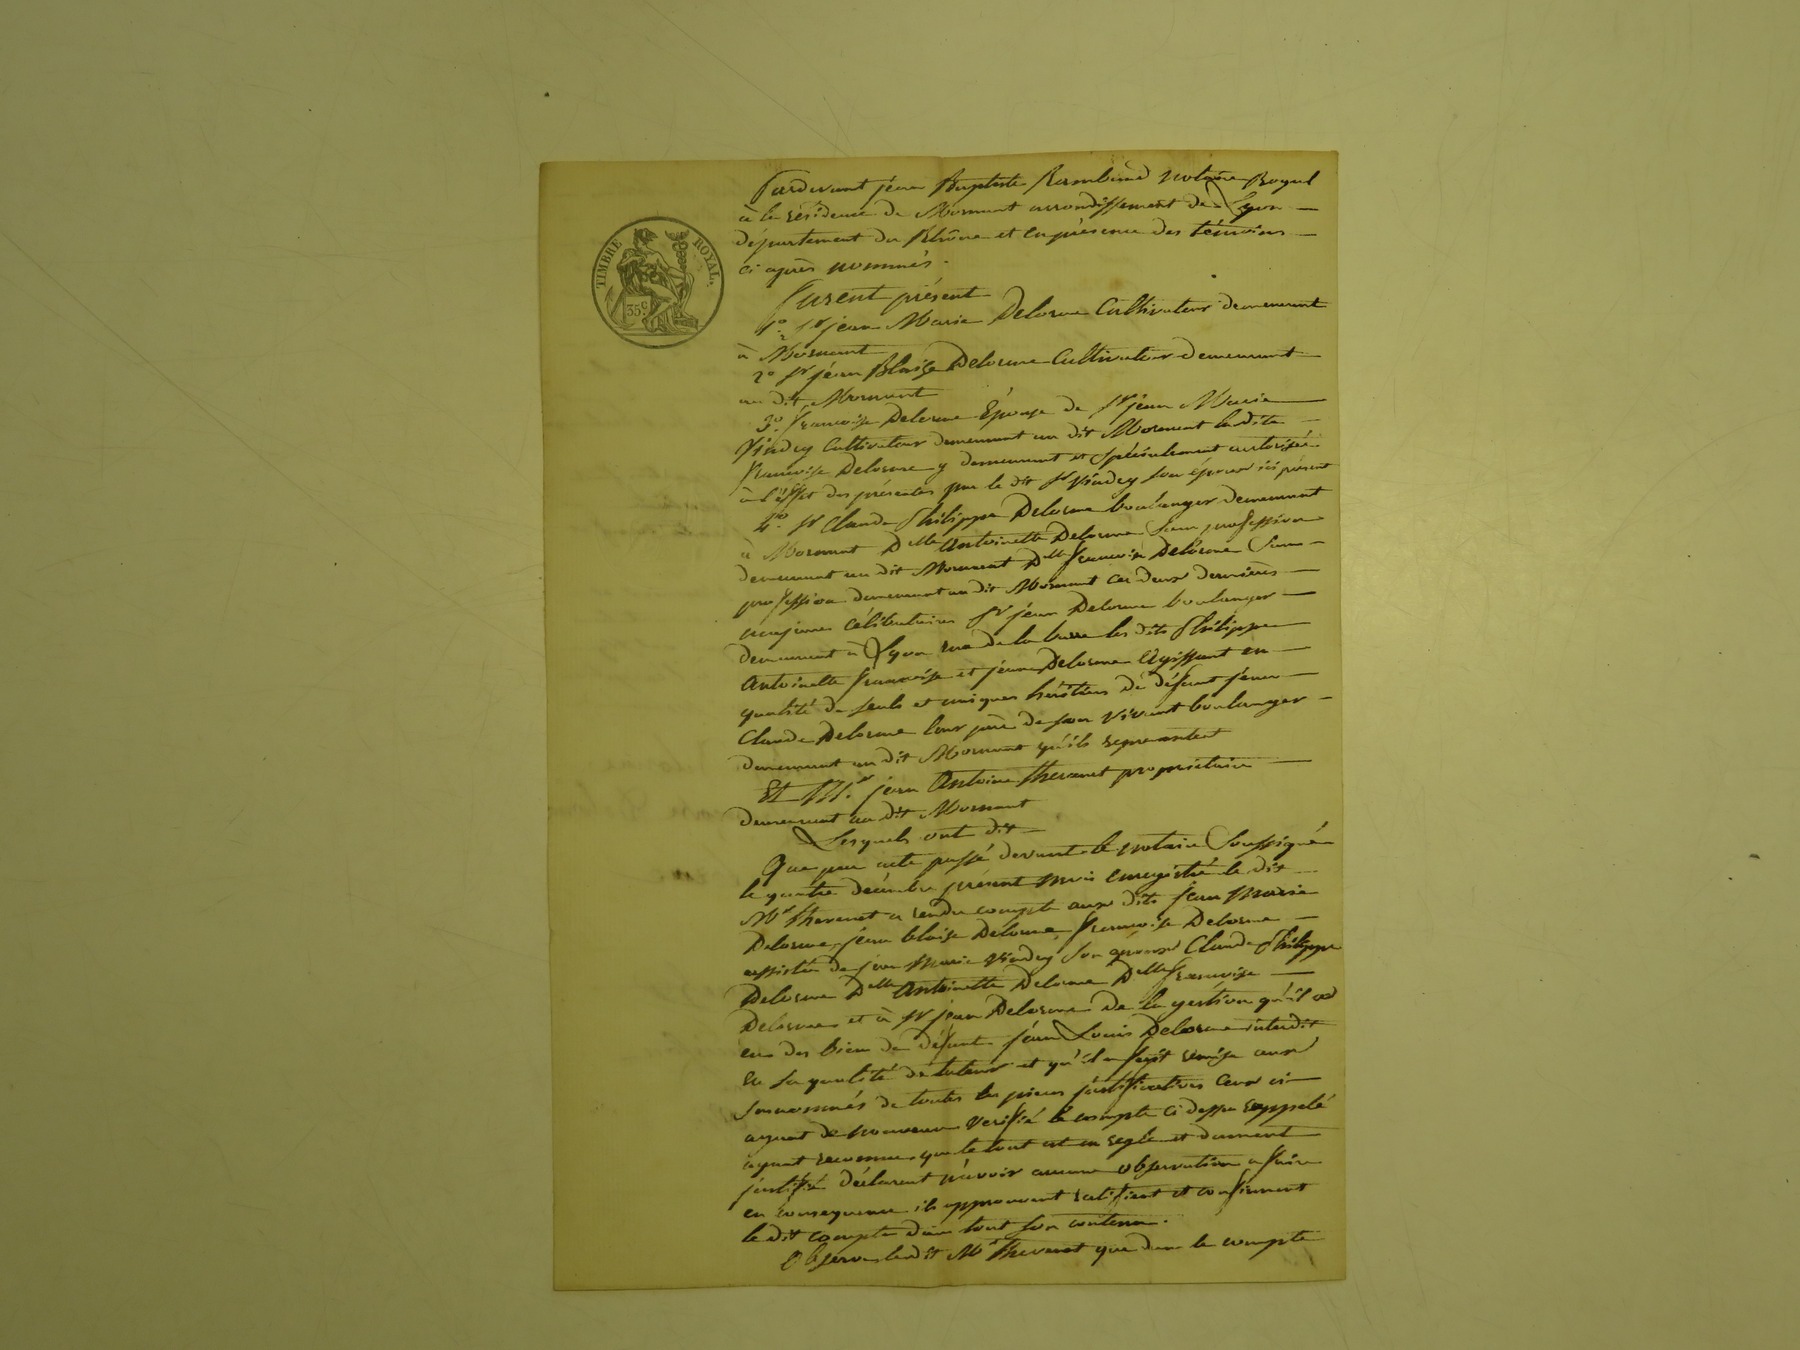 TIMBRE ROYAL.
35 c
Pardevant jean Baptiste notaire Royal
à la résidence de Mornant arrondissement de Lyon
département du Rhône et en présence des témoins
ci après nommés.
furent présent
1º. Sr jean Marie Delorme Cultivateur demeurant
à Mornant
2º Sr jean Blaise Delorme Cultivateur demeurant
au dit Mornant
3º. françoise Delorme Épouse de Sr jean Marie
Vindry Cultivateur demeurant au dit Mornant la dite
françoise Delorme y demeurant et spécialement autorisée
à l'effet des présentes par le dit Sr Vindry son époux ici présent
4º. Sr Claude Philippe Delorme boulanger demeurant
à Mornant Dlle Antoinette Delorme sans profession
demeurant au dit Mornant Dlle françoise Delorme sans
profession demeurant au dit Mornant ces deux dernières
majeures célibataires Sr jean Delorme boulanger
demeurant à Lyon rue de la les dits Philippe
Antoinette françoise et jean Delorme agissant en
qualité de seuls et uniques héritiers de défunt jean
Claude Delorme leur père de son vivant boulanger
demeurant au dit Mornant qu'ils représentent
Et Mr. jean Antoine thevenet propriétaire
demeurant au dit Mornant
Lesquels ont dit
Que par acte passé devant le notaire soussigné
le quatre décembre présent mois enregistré le dit
Mr thevenet a rendu compte aux dits jean Marie
Delorme, jean blaise Delorme, françoise Delorme
assistée de jean Marie Vindry son époux Claude Philippe
Delorme Dlle Antoinette Delorme Dlle françoise
Delorme et à Sr jean Delorme de la gestion qu'il a
eue des biens de défunt jean Louis Delorme interdit
en sa qualité de tuteur et qu'il a fait remise aux
surnommés de toutes les pièces justificatives ceux ci
ayant de nouveau vérifié le compte ci dessus rappelé
ayant reconnu que le tout est en regle et dument
justifié déclarent n'avoir aucune observation a faire
en conséquence ils approuvent ratifient et confirment
le dit compte dans tout son contenu.
Observe le dit Mr thevenet que dans le compte